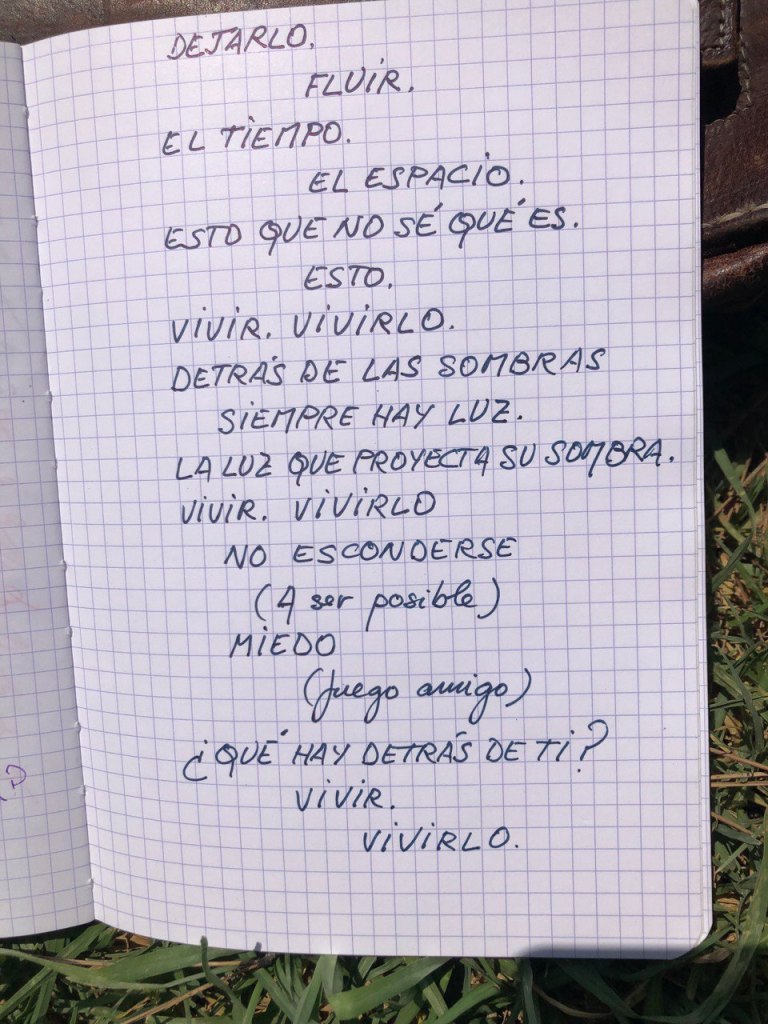 DEJARLO.
FLUIR.
EL TIEMPO.
EL ESPACIO.
ESTO QUE NO SÉ QUÉ ES.
ESTO.
VIVIR. VIVIRLO.
DETRÁS DE LAS SOMBRAS
SIEMPRE HAY LUZ.
LA LUZ QUE PROYECTA SU SOMBRA.
VIVIR. VIVIRLO
NO ESCONDERSE
(A ser posible)
MIEDO
(fuego amigo)
¿QUÉ HAY DETRÁS DE TI?
VIVIR.
VIVIRLO.